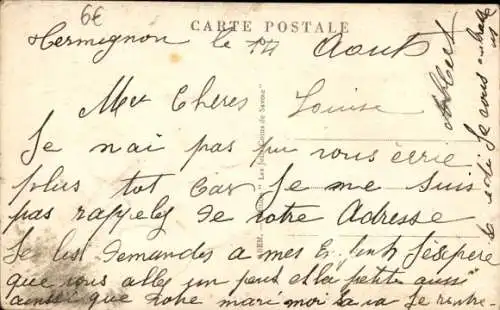 6€
CARTE POSTALE
Hermignon le 14 Aout
Mes Cheres Louise
Je n'ai pas pu vous écrie
plus tot Car Je me suis
pas rappely de votre Adresse
Je les demandes a mes J'éspère
que vous alles un peut et la petite aussi
ainsi que votre mari moi sa va Je rentre
"Les Jolis Coins de Savoie"
Albert